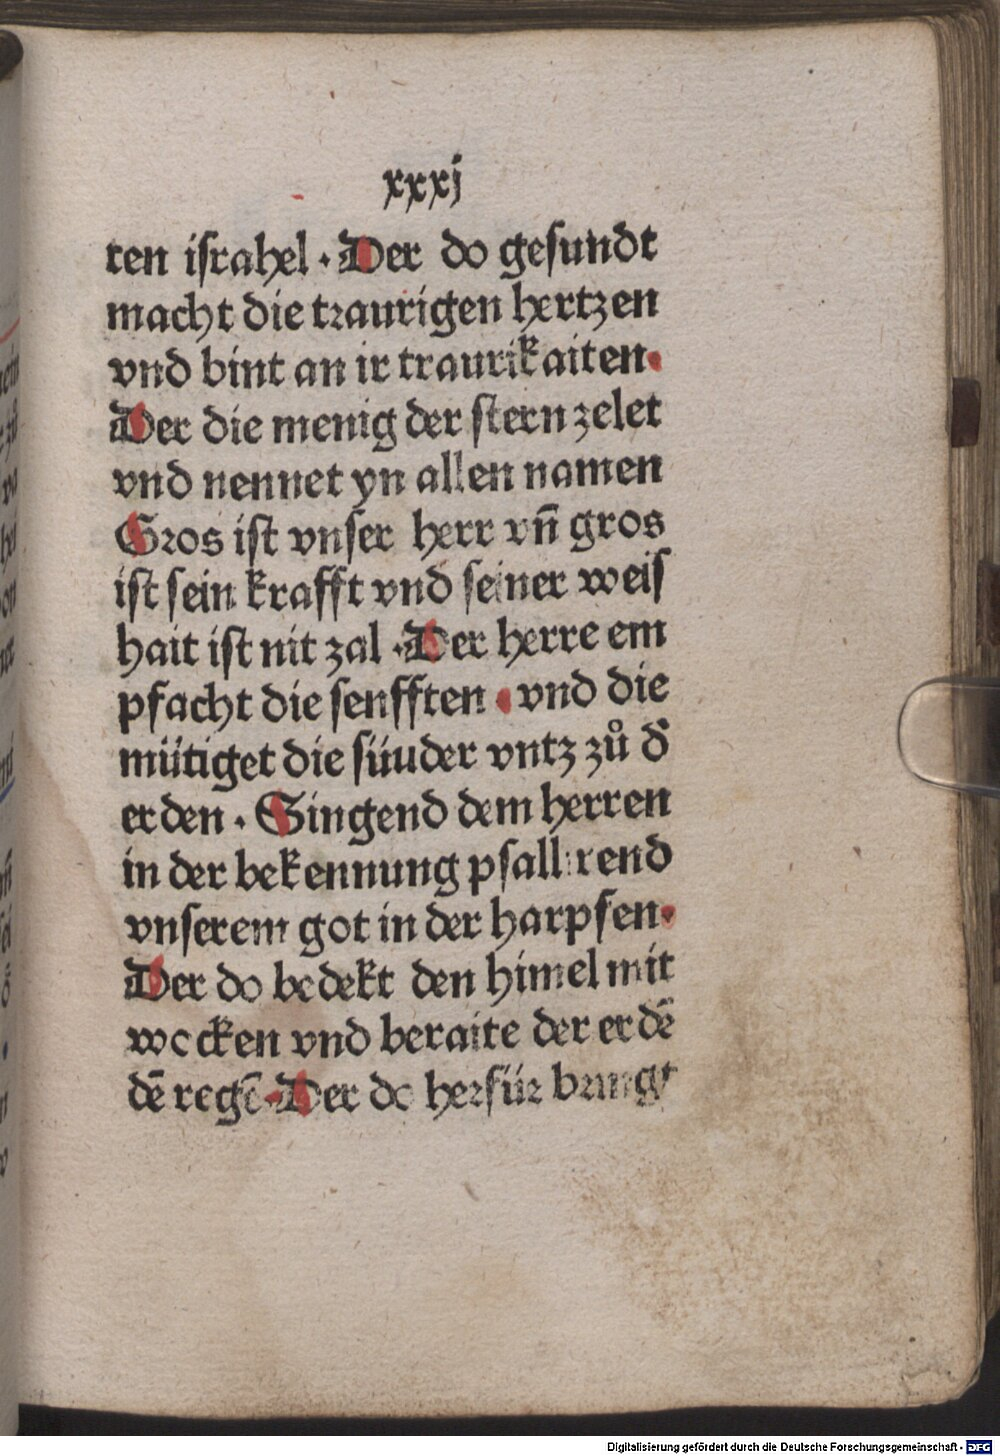 xxxj
ten israhel · Der do gesundt
macht die traurigen hertzen
vnd bint an ir traurikaiten.
Der die menig der stern zelet
vnd nennet yn allen namen
Gros ist vnser herr vn̄ gros
ist sein krafft vnd seiner weis
hait ist nit zal · Der herre em
pfacht die senfften · vnd die
mütiget die süuder vntz zů d̕
erden · Singend dem herren
in der bekennung psallirend
vnserem got in der harpfen.
Der do bedekt den himel mit
wocken vnd beraite der erdē
dē regē · Der do herfür bringt
Digitalisierung gefördert durch die Deutsche Forschungsgemeinschaft - DFG